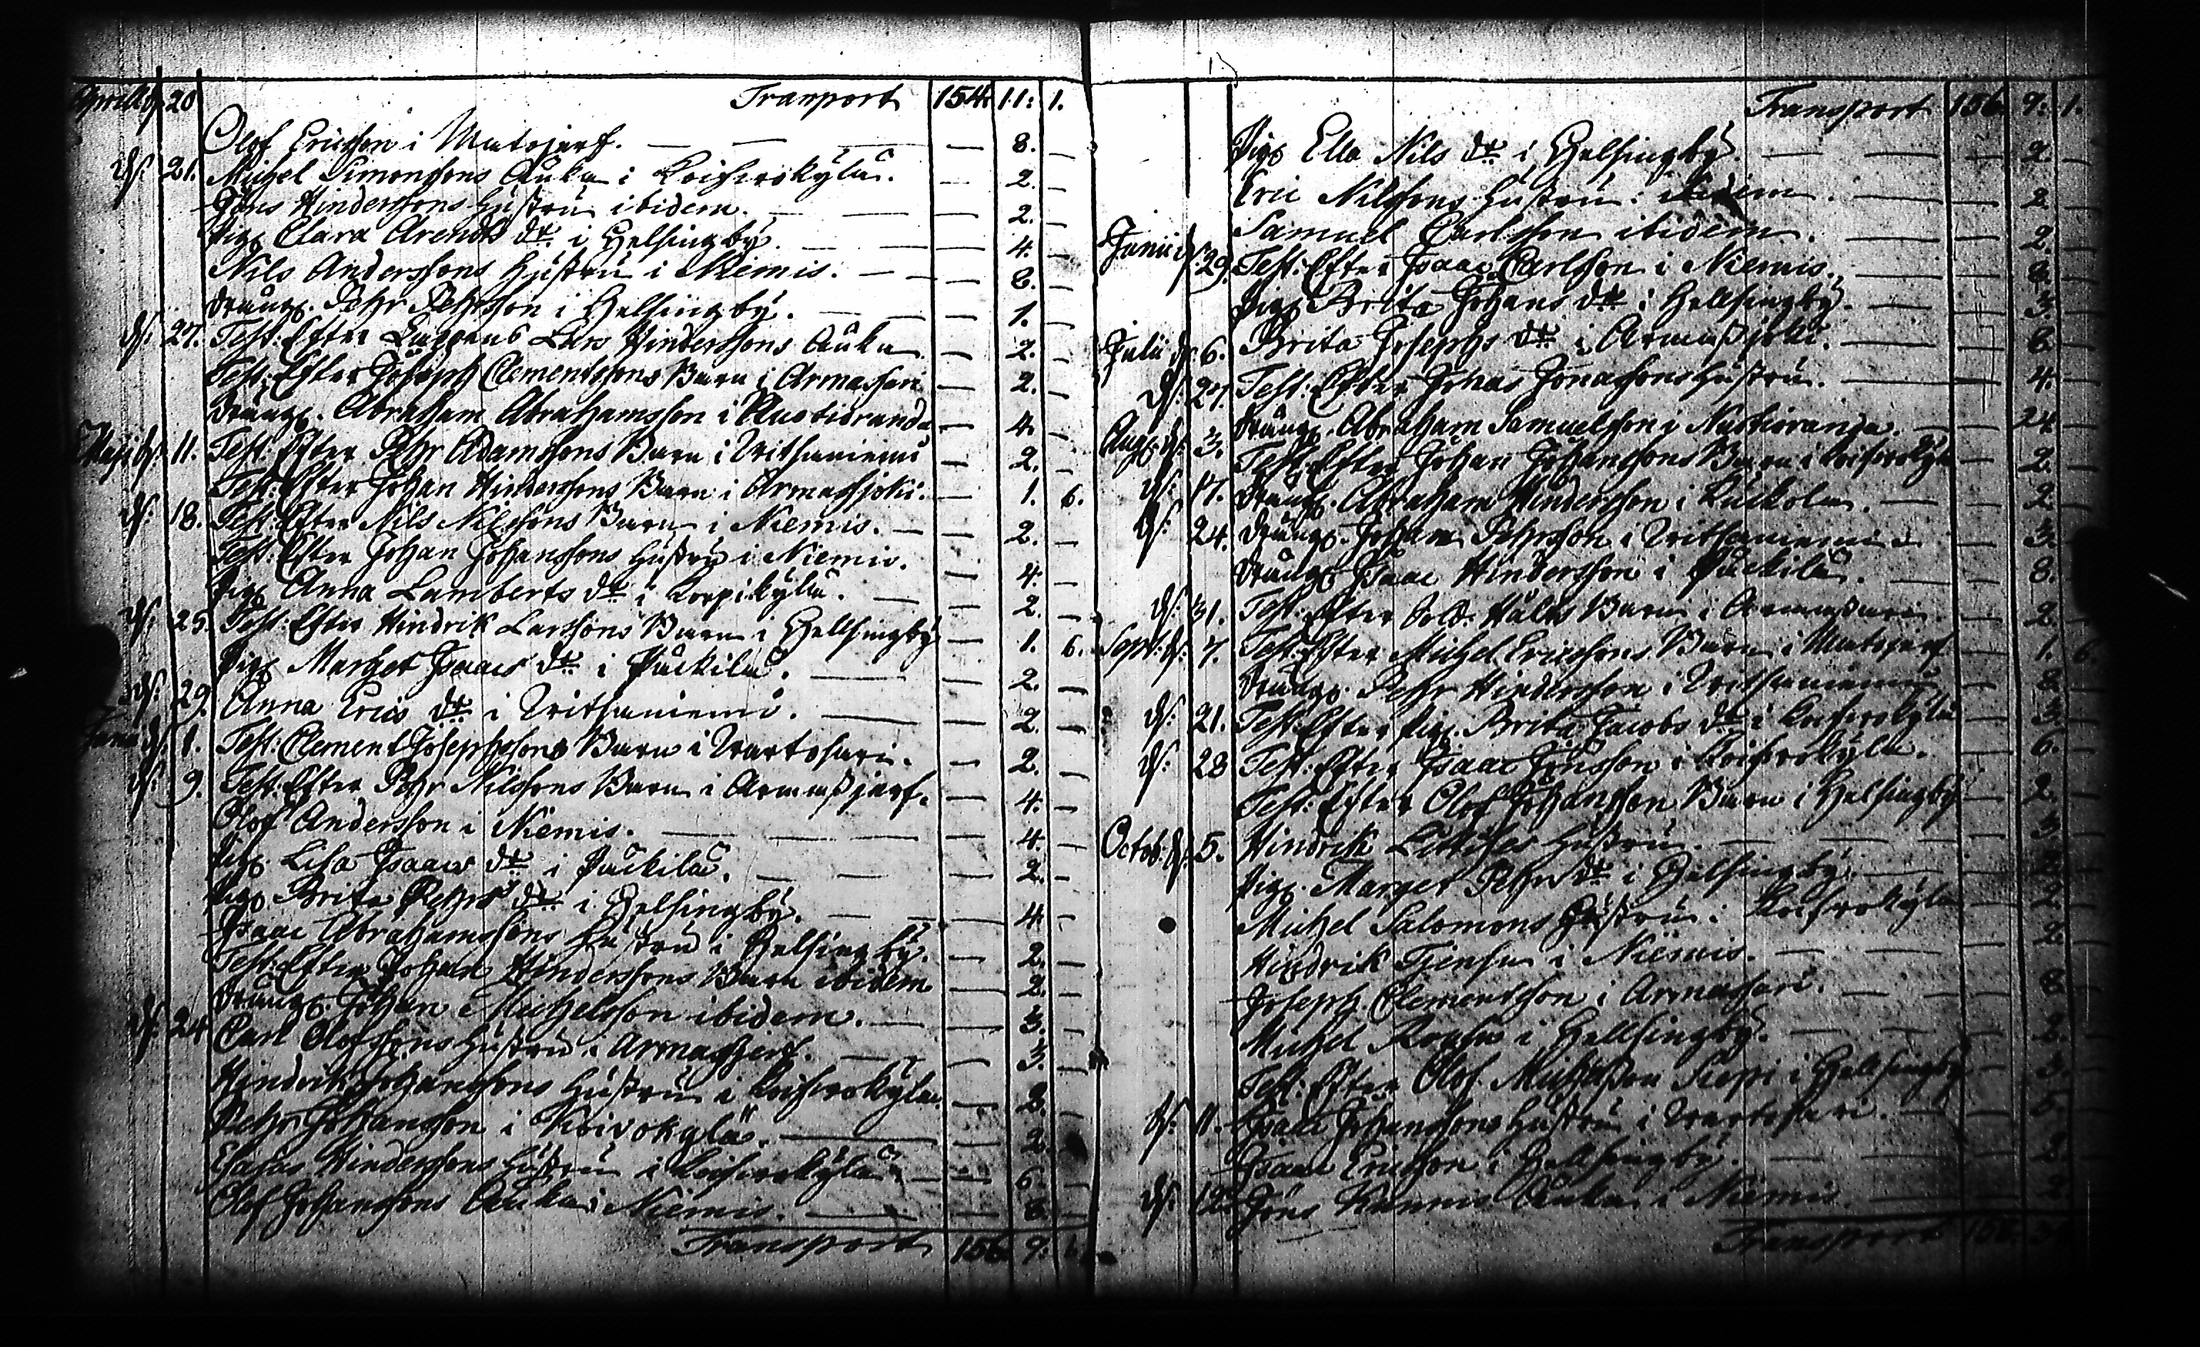 Aprill d. 20 Tranport 154. 11. 1.
Olof Ericsson i Matojarf. — 8. —
d. 21. Michel Simonssons Änka i Koifwokylä. — 2. —
Jöns Hinderssons Hustru ibidem. — 2. —
Pig. Clara Arends dtr i Helsingby. — 4. —
Nils Anderssons Hustru i Niemis. — 8. —
Dräng. Pehr Pehrsson i Helsingby. — 1. —
d. 27. Test: Efter Lars Hinderssons Änka — 2. —
Test: Efter Joseph Clementssons Barn i Armassari — 2. —
Dräng. Abraham Abrahamsson i — 4. —
Maji d. 11. Test: Efter Pehr Adamssons Barn i Witsaniemi — 2. —
Test: Efter Johan Hinderssons Barn i Armasjoki. — 1. 6.
d. 18. Test: Efter Nils Nilssons Barn i Niemis. — 2. —
Test: Efter Johan Johanssons Hustru i Niemis. 4. —
Pig. Anna Lamberts dtr i Korpikylä. — 2. —
d. 25. Test: Efter Hindrik Larssons Barn i Hellsingby — 1. 6.
Pig. Marget Isaacs dtr i Päckilä. — 2. —
d. 29. Anna Erics dtr i Witsaniemi. — 2. —
Junii d. 1. Test: Clement Josephssons Barn i Wartosari. — 2. —
d. 9. Test: Efter Pehr Nilssons Barn i Armassjärf. — 4. —
Olof Andersson i Niemis. — 4. —
Pig. Lisa Isaacs dtr i Päckilä. — 2. —
Pig. Brita Pehrs dtr i Helsingby. — 4. —
Isaac Abrahamssons Hustru i Helsingby. — 2. —
Test: Efter Johan Hinderssons Barn ibidem — 2. —
Dräng. Johan Michelsson ibidem. — 3. —
d. 24 Carl Olofssons Hustru i Armasjerf. — 3. —
Hindrik Johanssons Hustru i Koifwokylä. — 2. —
Pehr Johansson i Koivokylä. — 2
Esaias Hinderssons Hustru i Koifwokylä. — 6. —
Olof Johanssons Änka i Niemis. — 8. —
Transport 156. 9. 1.
Transport 156. 9. 1.
Pig. Ella Nils dtr i Helsingby. — 2. —
Eric Nilssons Hustru ibidem. — 2 —
Samuel Carlsson ibidem. — 2. —
Junii d. 29. Test: Efter Isaac Carlsson i Niemis. — 8. —
Pig. Brita Johans dtr i Hellsingby. — 3. —
Julii d. 6. Brita Josephs dtr i Armassjoki. — 8. —
d. 27. Test: Efter Johas Jonassons Hustru. — 4. —
Dräng. Abraham Samuelsson i — 24
Aug. d. 3. Test: Efter Johan Johanssons Barn i Koifwokylä — 2. —
d. 17. Dräng. Abraham Hindersson i — 2 —
d. 24. Dräng. Johan Pehrsson i Witsaniemi — 3. —
Dräng. Isaac Hindersson i Päckilä. — 8. —
d. 31. Test: Efter Sold. Hälts Barn i Armassari — 2. —
Sept. d. 7. Test: Efter Michel Ericssons Barn i Matojerf — 1. 6.
Dräng. Pehr Hindersson i Witsaniemi — 8. —
d. 21. Test: Efter Pig. Brita Jacobs dtr i Koifwokylä — 3. —
d. 28 Test: Efter Isaac Jönsson i Koifwokylä. — 6. —
Test: Efter Olof Johansson Barn i Helsingby — 2. —
Octob. d. 5. Hindrik Hustru. — 3 —
Pig. Marget Pehrs dtr i Helsingby. — 2. —
Michel Salomons Hustru i Koifwokylä — 2. —
Hindrik i Niemis. — 2. —
Joseph Clementsson i Armasari. — 8 —
Michel i Hellsingby. — 2. —
Test: Efter Olof Michelsson i Hellsingby — 3. —
d. 11. Isaac Johanssons Hustru i Wartosari. — 5. —
Isaac Ericsson i Hellsingby. — 2. —
d. 12. Jöns Änka i Niemis. — 2.
Transport